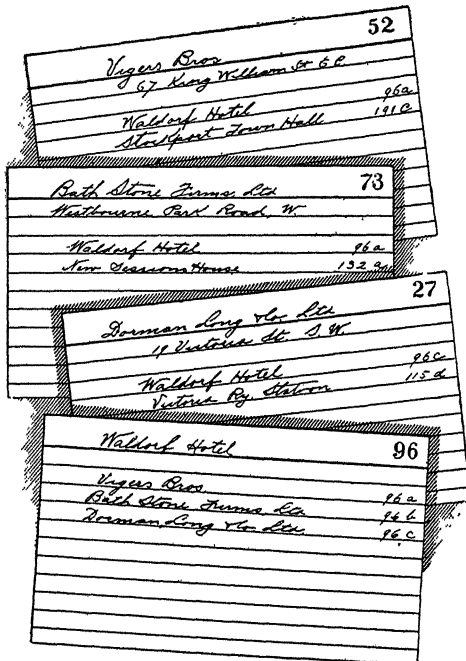 52
Vigers Bros
67 King William St E C
Waldorf Hotel 96a
Stockport Town Hall 191c
73
Bath Stone Firms, Ltd
Westbourne Park Road, W.
Waldorf Hotel 96a
New Sessions House 132a
27
Dorman Long & Co Ltd
19 Victoria St. S.W.
Waldorf Hotel 96c
Victoria Ry. Station 115d
96
Waldorf Hotel
Vigers Bros. 96a
Bath Stone Firms Ltd 96b
Dorman, Long & Co. Ltd. 96c